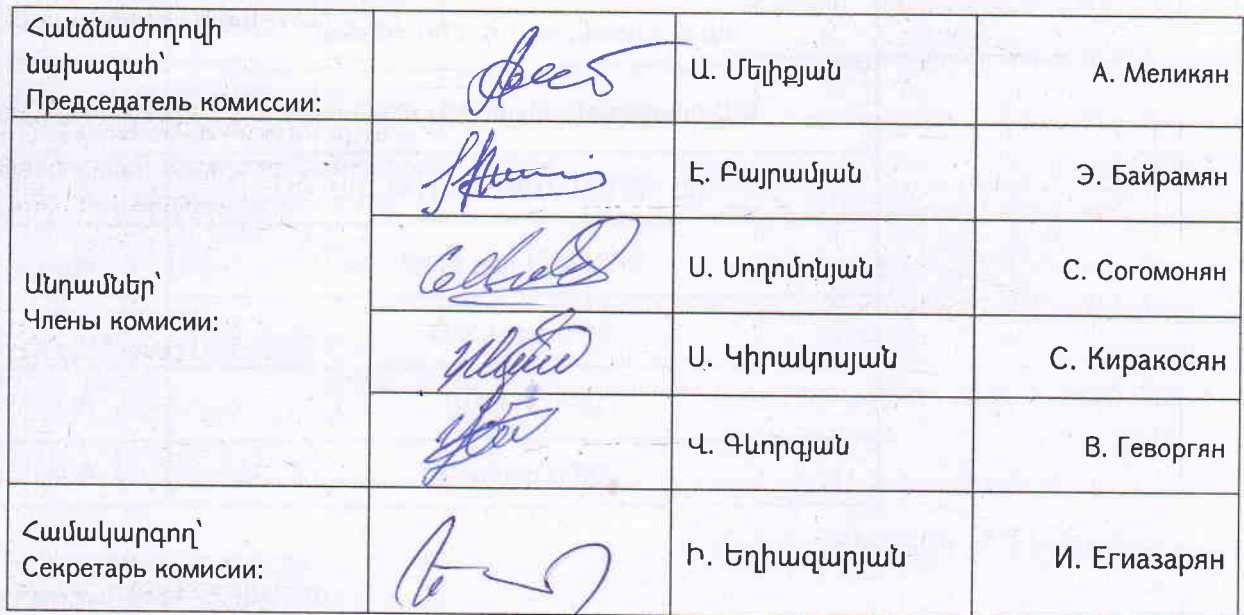 Հանձնաժողովի
նախագահ՝
Председатель комиссии:
Ա. Մելիքյան
А. Меликян
Է. Բայրամյան
Э. Байрамян
Անդամներ՝
Члены комисии:
Ս. Սողոմոնյան
С. Согомонян
Ս. Կիրակոսյան
С. Киракосян
Վ. Գևորգյան
В. Геворгян
Համակարգող՝
Секретарь комисии:
Ի. Եղիազարյան
И. Егиазарян